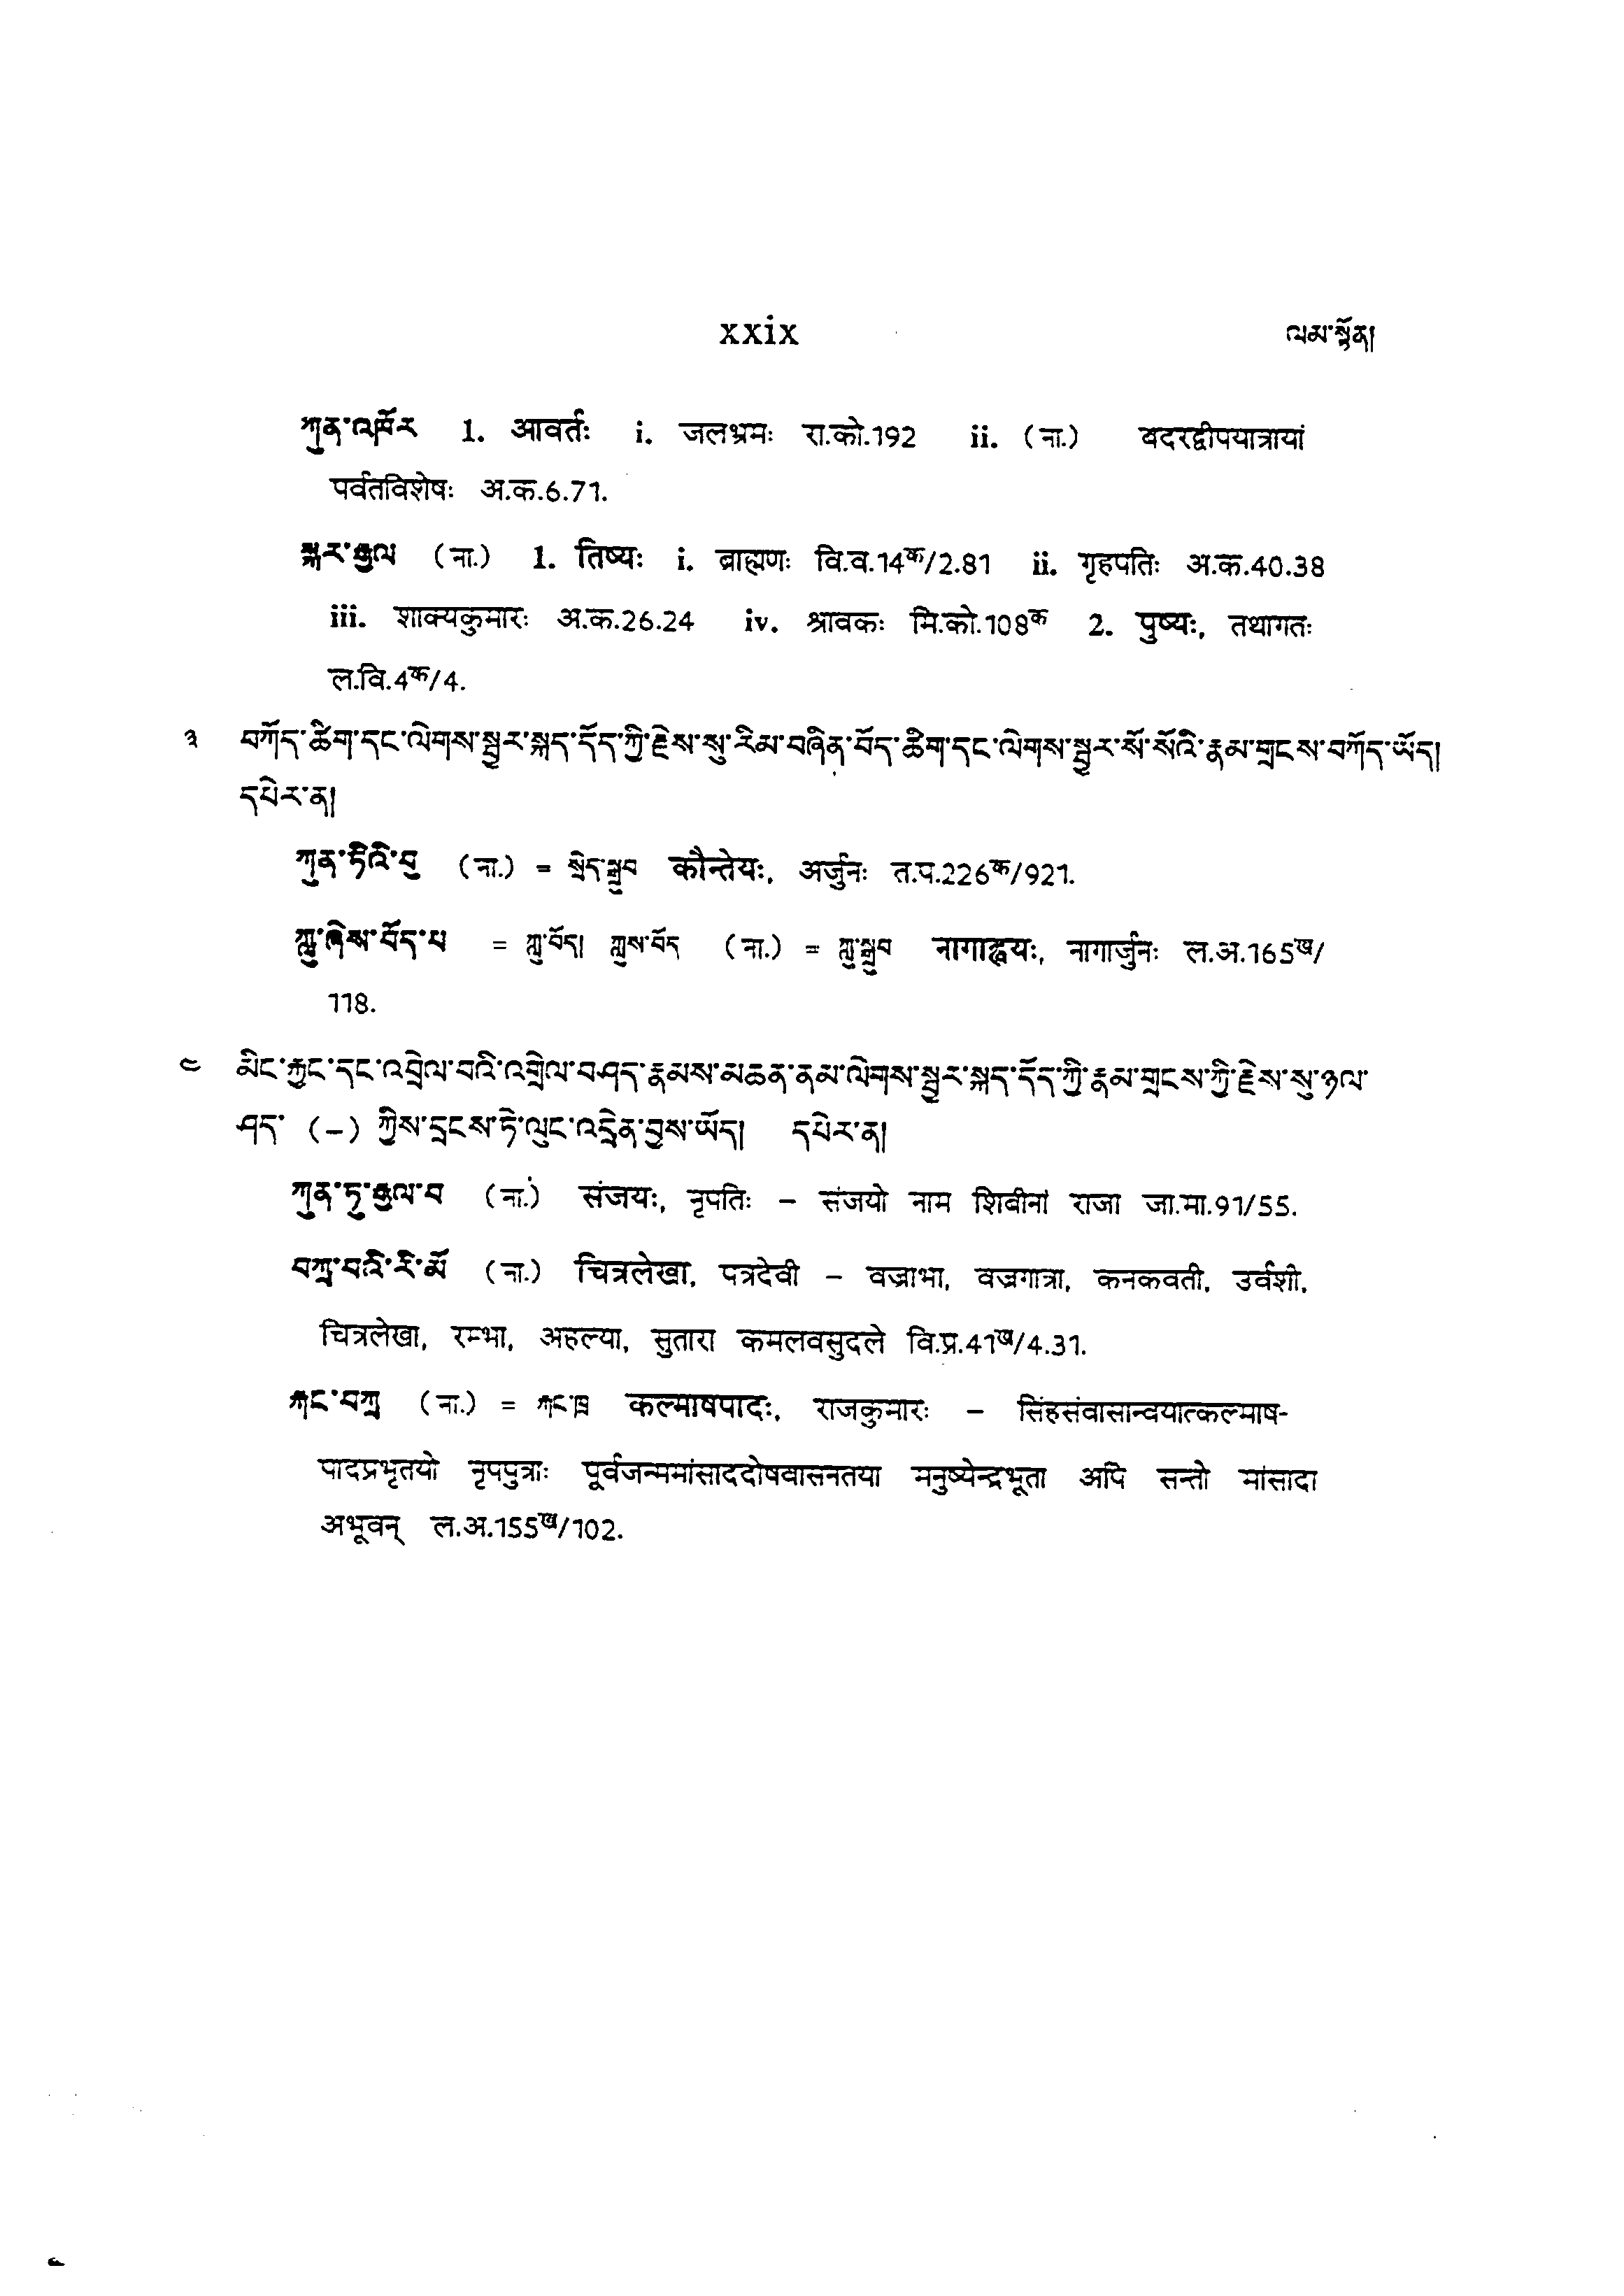 xxix ལམ་སྟོན།
ཀུན་འཁོར 1. आवर्तः i. जलभ्रमः रा.को.192 ii. (ना.) बदरद्वीपयात्रायां
पर्वतविशेषः अ.क.6.71.
སྐར་རྒྱལ (ना.) 1. तिष्यः i. ब्राह्मणः वि.व.14क/2.81 ii. गृहपतिः अ.क.40.38
iii. शाक्यकुमारः अ.क.26.24 iv. श्रावकः मि.को.108क 2. पुष्यः, तथागतः
ल.वि.4क/4.
༣ བཀོད་ཚིག་དང་ལེགས་སྦྱར་སྐད་དོད་ཀྱི་རྗེས་སུ་རིམ་བཞིན་བོད་ཚིག་དང་ལེགས་སྦྱར་སོ་སོའི་རྣམ་གྲངས་བཀོད་ཡོད།
དཔེར་ན།
ཀུན་ཏིའི་བུ (ना.) = སྲིད་སྒྲུབ कौन्तेयः, अर्जुनः त.प.226क/921.
ཀླུ་ཞེས་བོད་པ = ཀླུ་བོད། ཀླུས་བོད (ना.) = ཀླུ་སྒྲུབ नागाह्वयः, नागार्जुनः ल.अ.165ख/
118.
༤ མིང་རྐྱང་དང་འབྲེལ་བའི་འགྲེལ་བཤད་རྣམས་མཆན་ནམ་ལེགས་སྦྱར་སྐད་དོད་ཀྱི་རྣམ་གྲངས་ཀྱི་རྗེས་སུ་ཉལ་
ཤད་ (–) ཀྱིས་དྲངས་ཏེ་ལུང་འདྲེན་བྱས་ཡོད། དཔེར་ན།
ཀུན་ཏུ་རྒྱལ་བ (ना.) संजयः, नृपतिः – संजयो नाम शिबीनां राजा जा.मा.91/55.
བཀྲ་བའི་རི་མོ (ना.) चित्रलेखा, पत्रदेवी – वज्राभा, वज्रगात्रा, कनकवती, उर्वशी,
चित्रलेखा, रम्भा, अहल्या, सुतारा कमलवसुदले वि.प्र.41ख/4.31.
རྐང་བཀྲ (ना.) = རྐང་ཁྲ कल्माषपादः, राजकुमारः – सिंहसंवासान्वयात्कल्माष-
पादप्रभृतयो नृपपुत्राः पूर्वजन्ममांसाददोषवासनतया मनुष्येन्द्रभूता अपि सन्तो मांसादा
अभूवन् ल.अ.155ख/102.